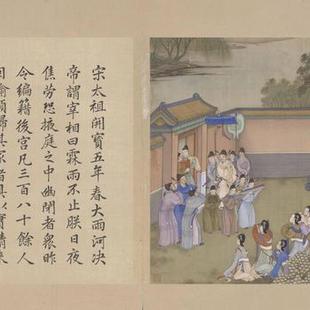 宋太祖開寶五年春大雨河決
帝謂宰相曰霖雨不止朕日夜
焦勞恐掖庭之中幽閉者衆昨
令編籍後宮凡三百八十餘人
因諭願歸其家者具以